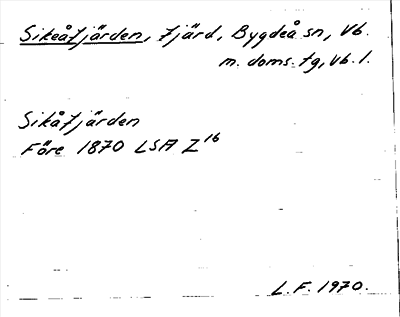 Sikeåfjärden, fjärd, Bygdeå sn, Vb.
m. doms. tg, Vb. l.
Sikåfjärden
Före 1870 LSA Z16
L.F. 1970.